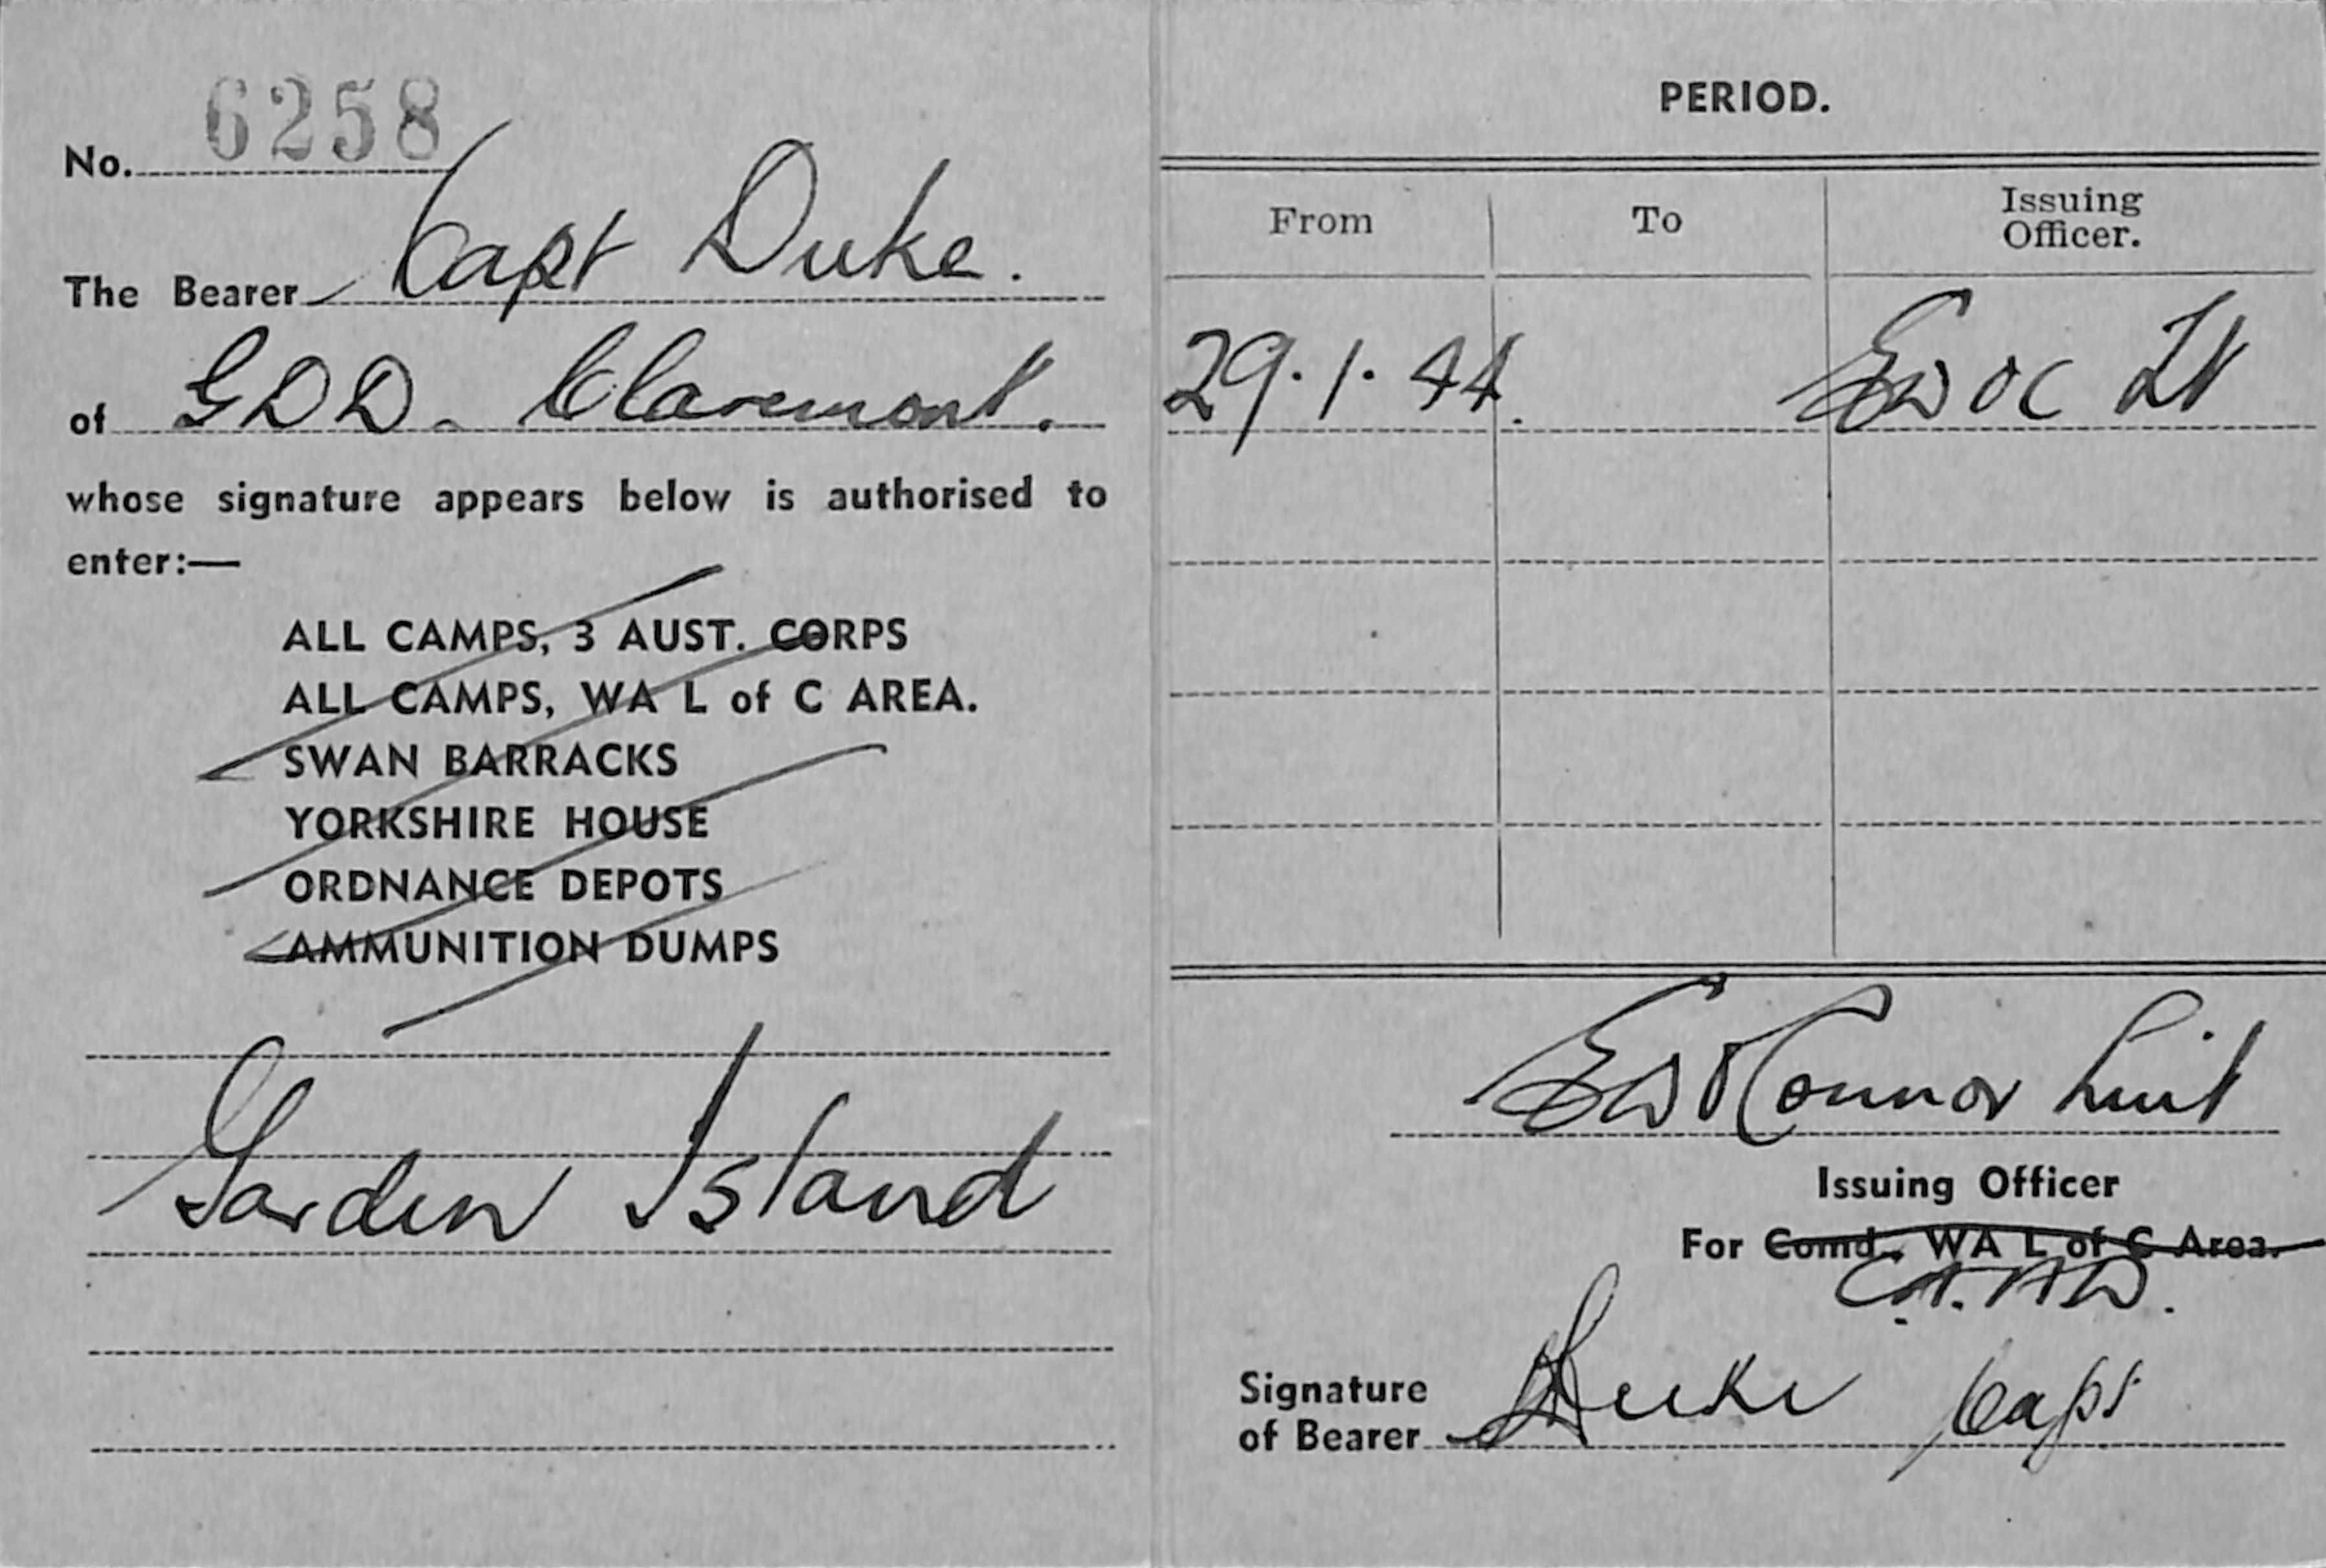 No. 6258
The Bearer Capt Duke.
of GDD. Claremont.
whose signature appears below is authorised to
enter:—
ALL CAMPS, 3 AUST. CORPS
ALL CAMPS, WA L of C AREA.
SWAN BARRACKS
YORKSHIRE HOUSE
ORDNANCE DEPOTS
AMMUNITION DUMPS
Garden Island
PERIOD.
From To Issuing
Officer.
29.1.44. EWOC Lt
EWO'Connor Lieut
Issuing Officer
For Comd., WA L of C Area.
Signature
of Bearer Duke Capt